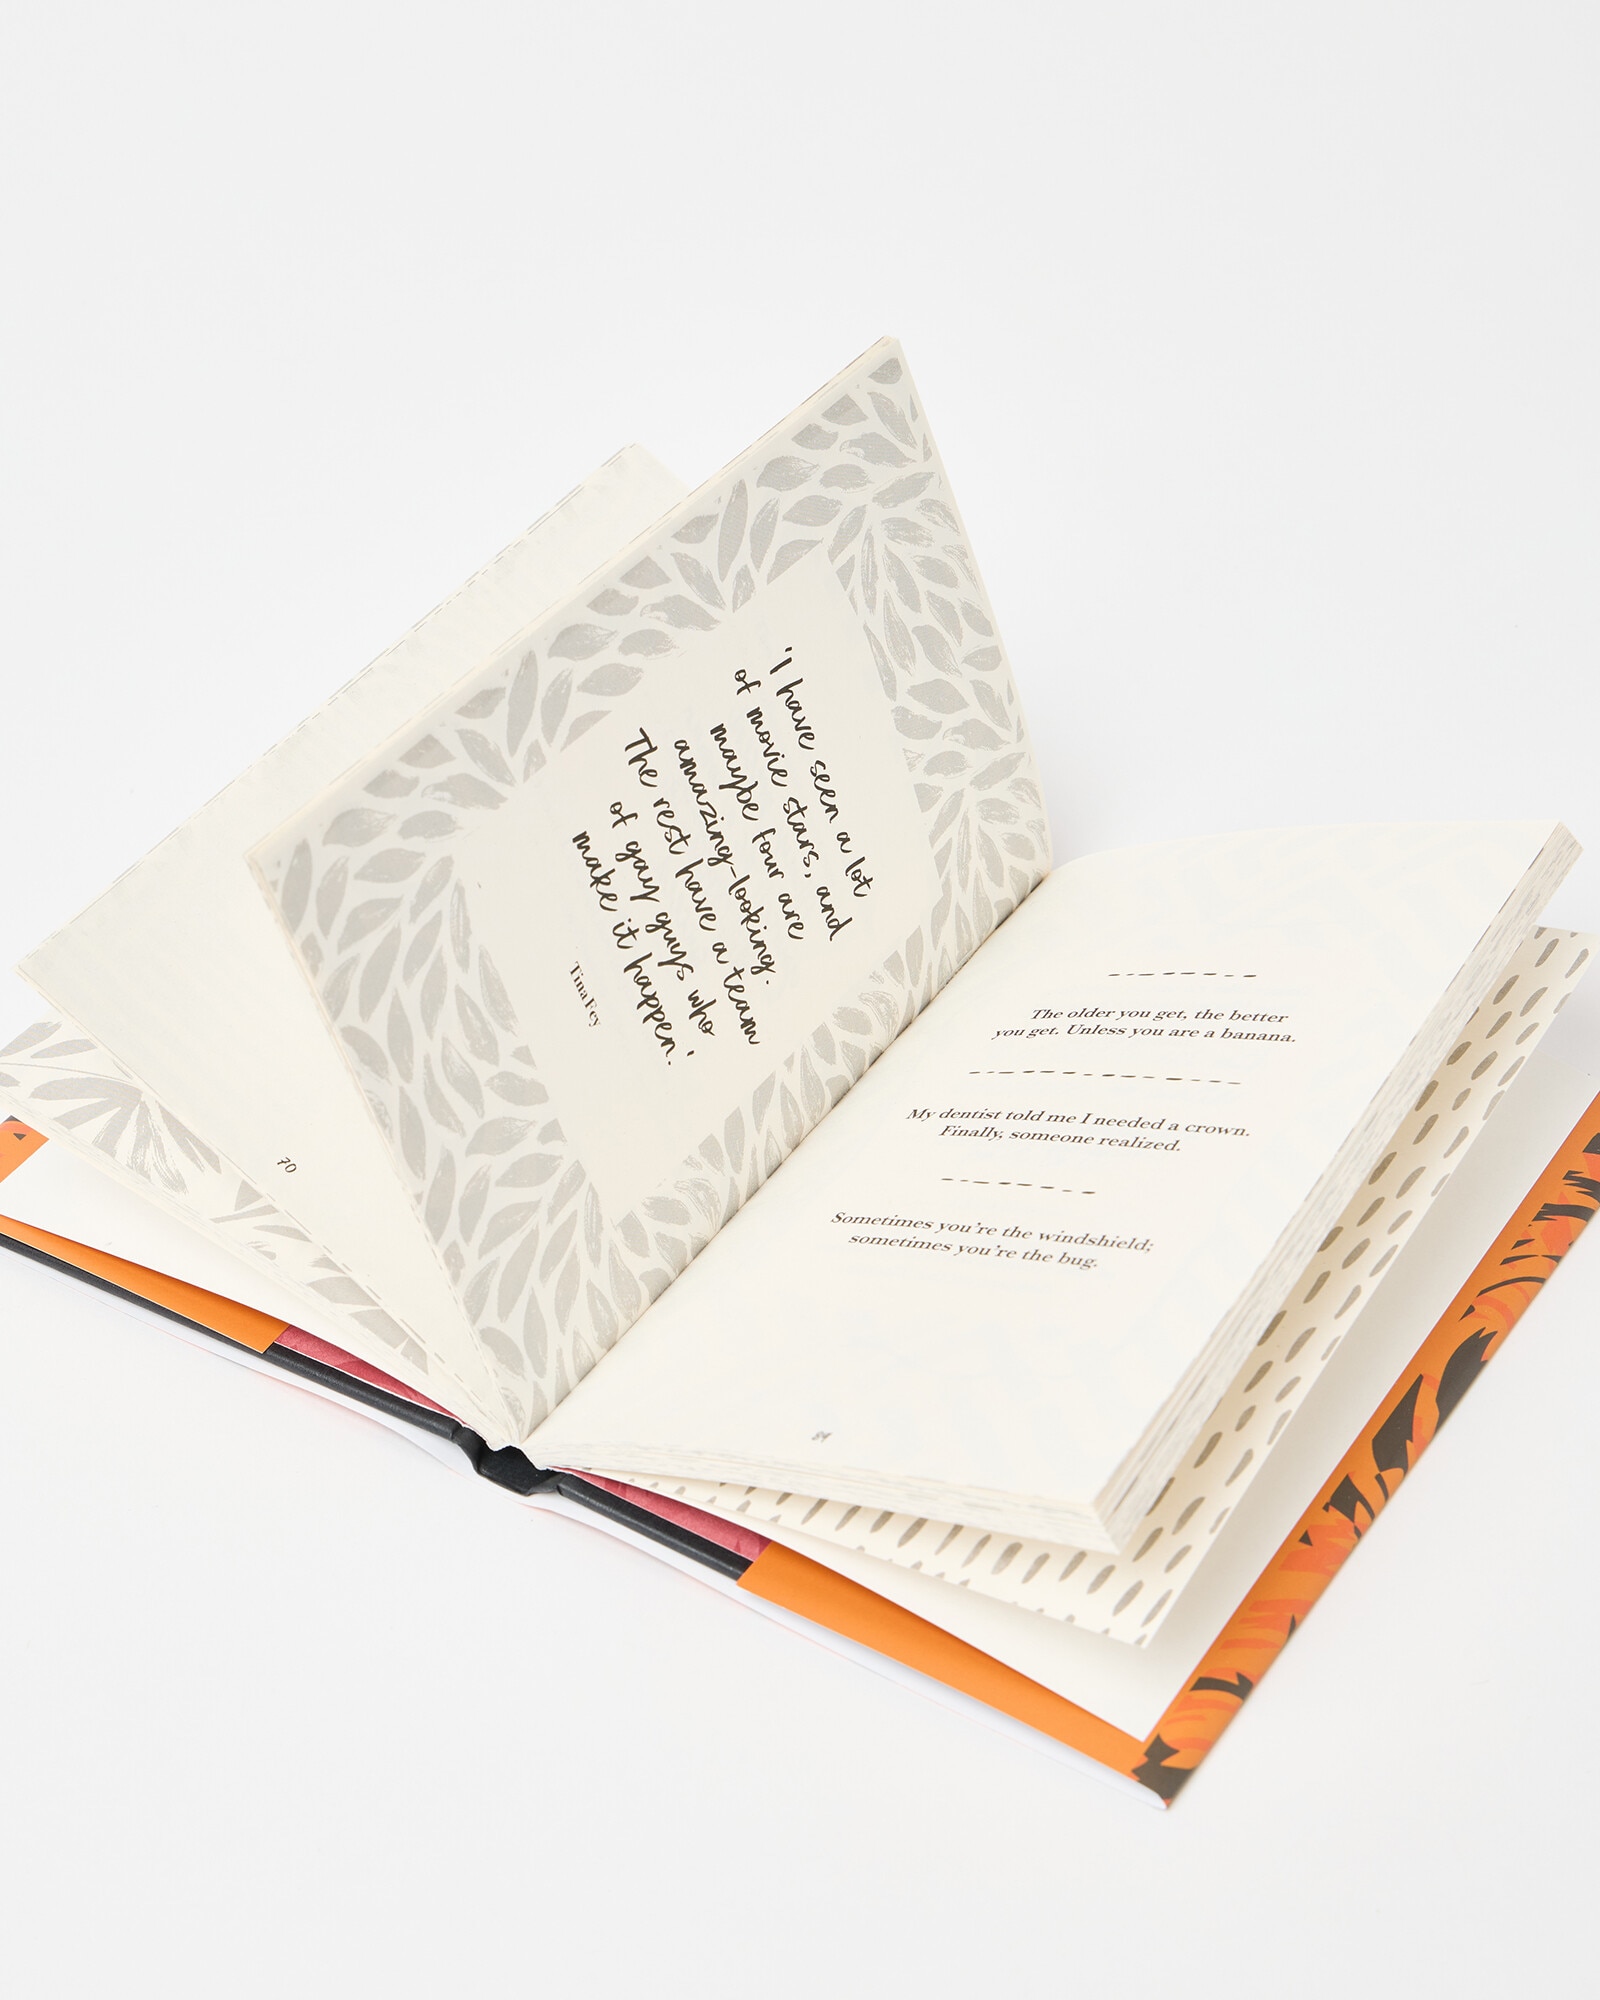 70
'I have seen a lot
of movie stars, and
maybe four are
amazing-looking.
The rest have a team
of gay guys who
make it happen.'
Tina Fey
The older you get, the better
you get. Unless you are a banana.
My dentist told me I needed a crown.
Finally, someone realized.
Sometimes you're the windshield;
sometimes you're the bug.
89